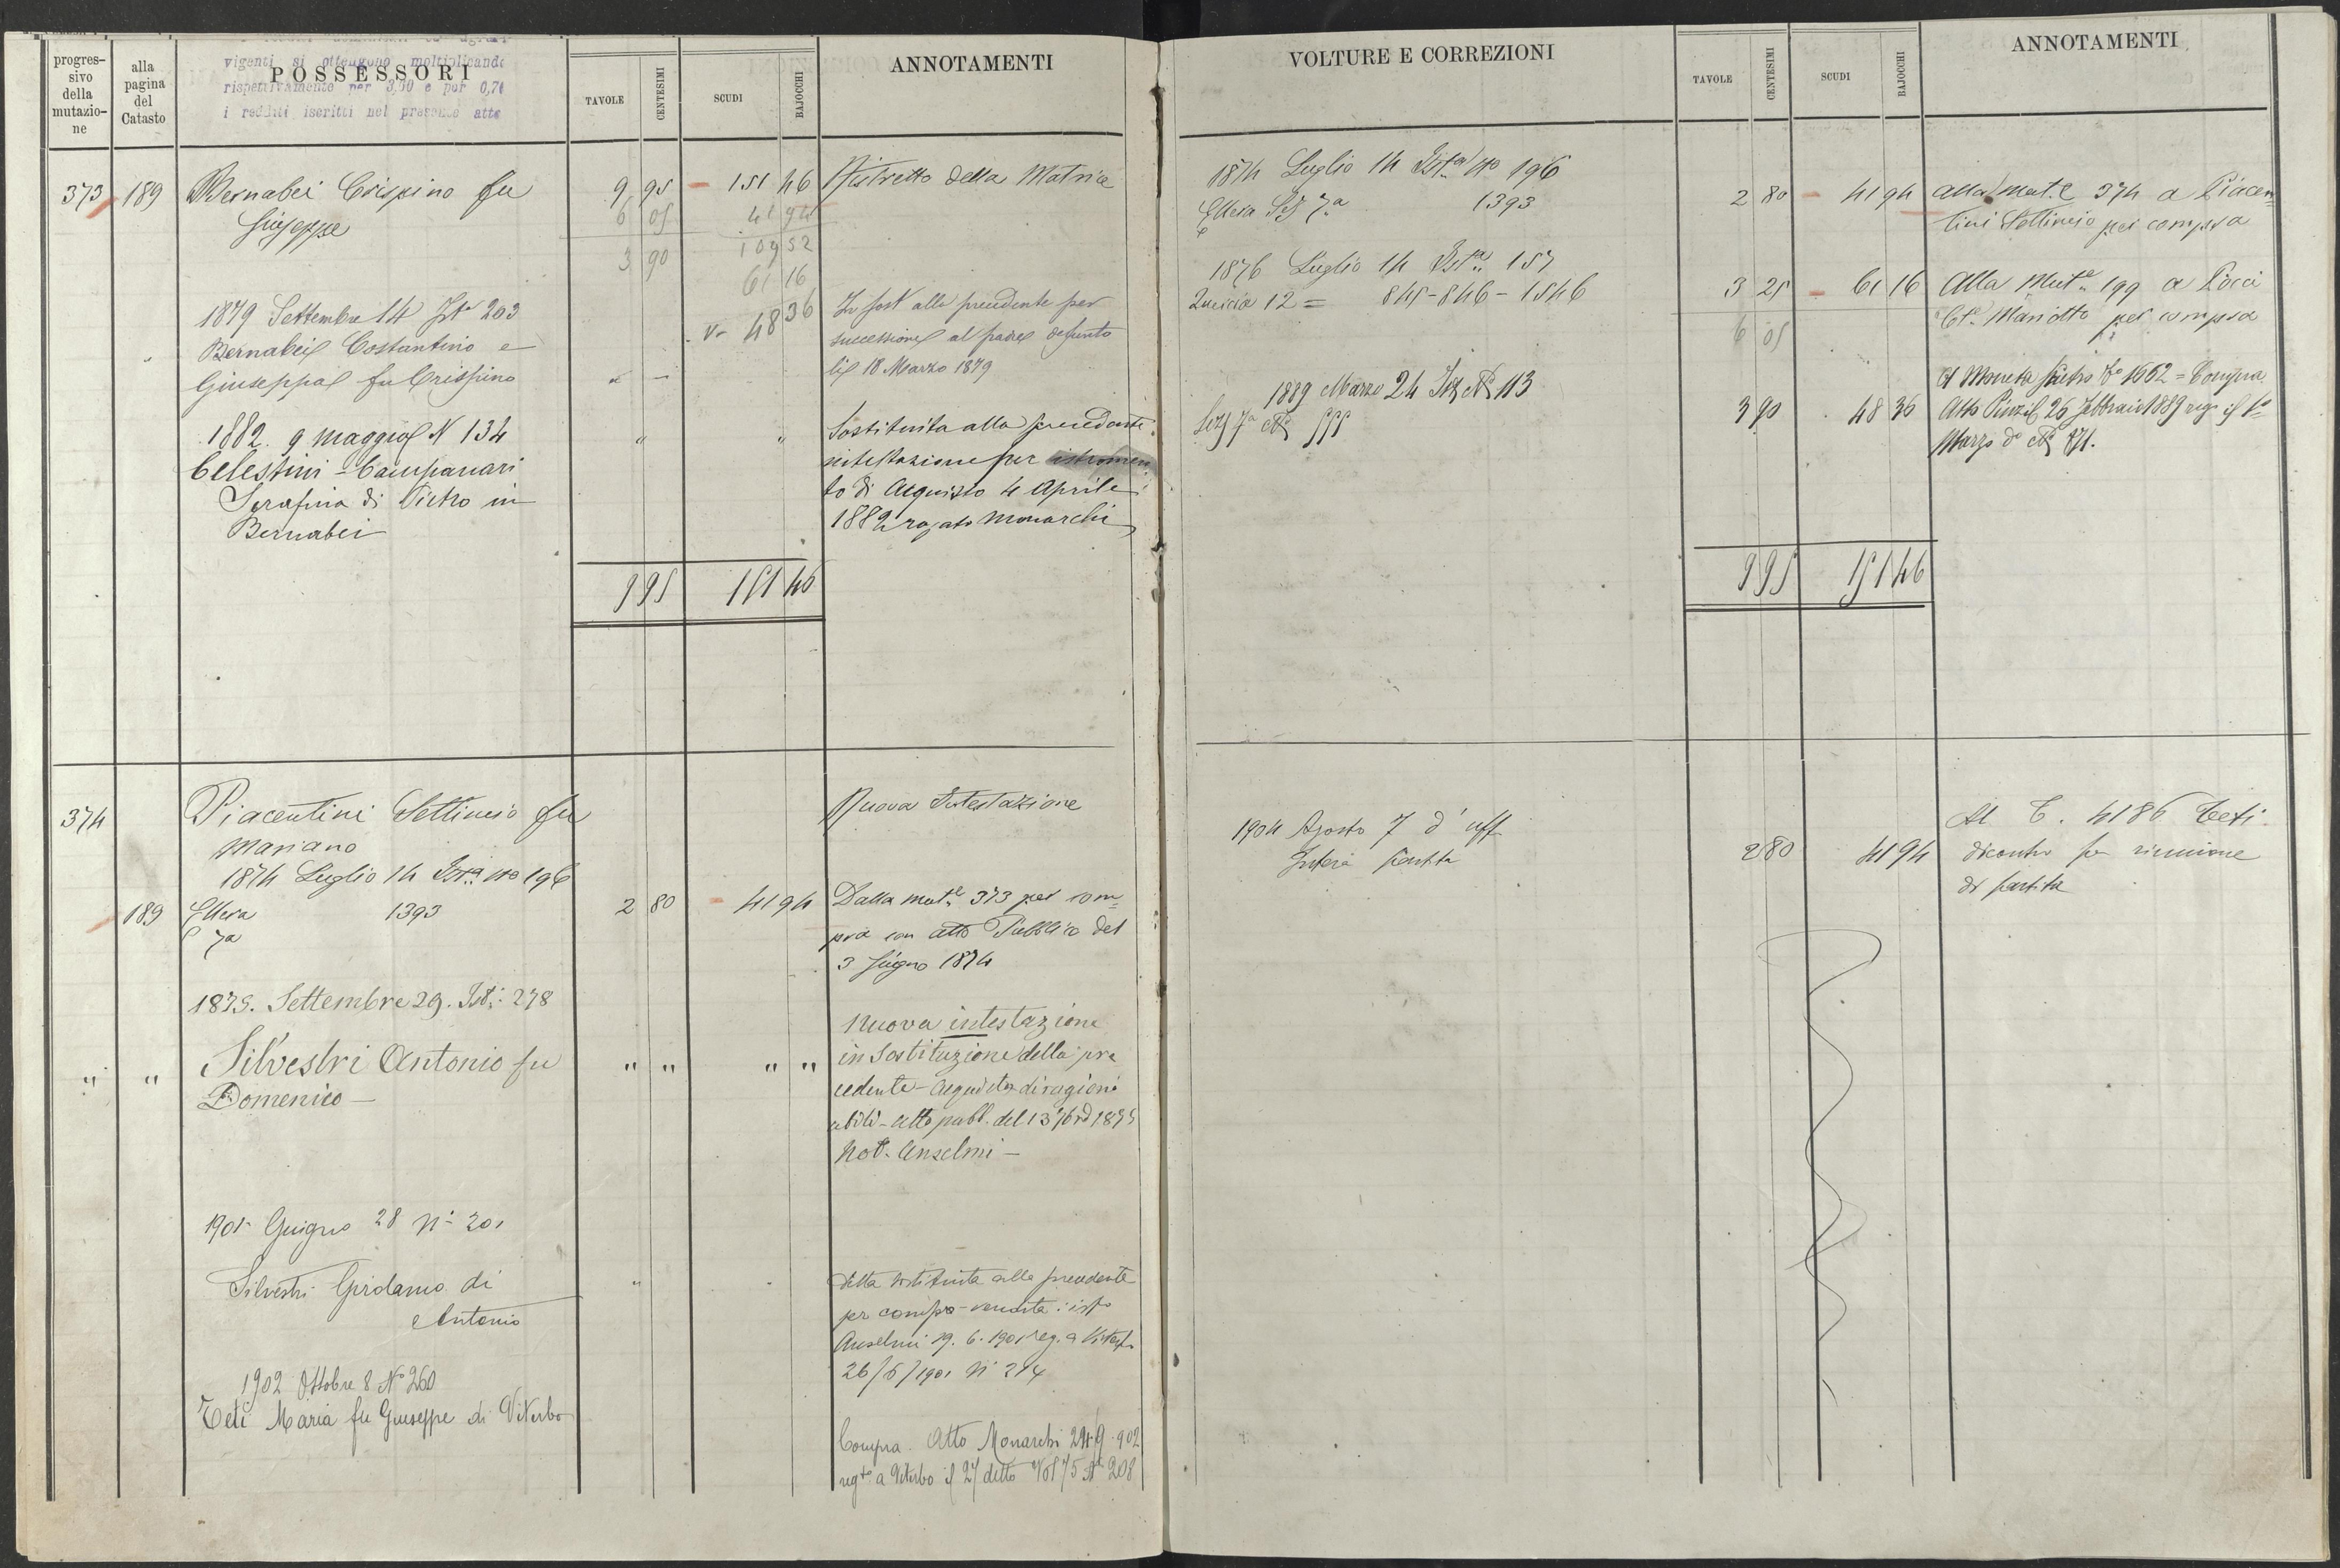 progres-
sivo
della
mutazio-
ne
alla
pagina
del
Catasto
vigenti si ottengono moltiplicando
POSSESSORI
rispettivamente per 3,00 e per 0,70
i redditi iscritti nel presente atto
TAVOLE
CENTESIMI
SCUDI
BAJOCCHI
ANNOTAMENTI
373 189 Bernabei Crispino fu 9 95 151 46 Ristretto della Matrice
Giuseppe 6 05 41 94
3 90 109 52
61 16
1879 Settembre 14 Ista 203 48 36
Bernabei Costantino e
Giuseppa fu Crispino
In sost alla precedente per
successione al padre defunto
li 18 Marzo 1879
1882. 9 maggio N 134 " "
Celestini - Campanari
Serafina di Pietro in
Bernabei
Sostituita alla precedente
intestazione per istromen
to di Acquisto 4 Aprile
1882 rogato Monarchi
9 95 151 46
374 Piacentini Settimio fu Nuova Intestazione
Mariano
1874 Luglio 14 Ista No 196
189 Ellera 1393 2 80 41 94
7a
Dalla mute 373 per com=
pra con atto Pubblico del
3 Giugno 1874
1875. Settembre 29. Ist: 278
" " Silvestri Antonio fu " " " "
Domenico —
Nuova intestazione
in sostituzione della pre
cedente - Acquisto di ragioni
utili - atto pubb. del 13 7bre 1875
Not. Anselmi —
1901 Giugno 28 N: 201
Silvestri Girolamo di "
Antonio
Ditta sostituita alla precedente
per compra-vendita: isto
Anselmi 19. 6. 1901 reg. a Viterbo
26/6/1901 N: 214
1902 Ottobre 8 No 260
Teti Maria fu Giuseppe di Viterbo
Compra. Atto Monarchi 9 902
regto a Viterbo il 27 detto Vol 75 No 208
VOLTURE E CORREZIONI
TAVOLE
CENTESIMI
SCUDI
BAJOCCHI
ANNOTAMENTI
1874 Luglio 14 Ista No 196
Ellera Sez 7a 1393 2 80 41 94
alla mute 374 a Piacen=
tini Settimio per compra
1876 Luglio 14 Ista 157
Quercia 12 = 845-846-1546 3 25 61 16
6 05
Alla Mute 199 a Pocci
Cte Mariotto per compra
1889 Marzo 24 Ist No 113
Sez 7a No 555 3 90 48 36
A Moneta Pietro 1662 = Compra
Atto Pinzi 26 Febbraio 1889 reg. il 1o
Marzo do No 871.
9 95 151 46
1904 Agosto 7 d'uff
Intera partita 2 80 41 94
Al C. 4186 Teti
dicontro per riunione
di partita